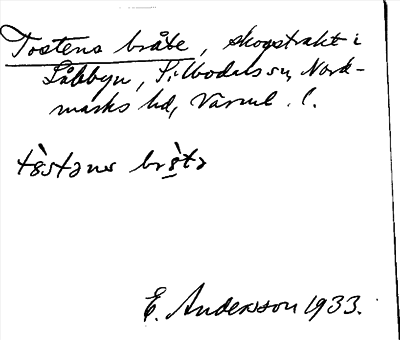 Tostens bråte, skogstrakt i
Låbbyn, Silbodals sn, Nord-
marks hd, Värml. l.
tòstəns brò̱tə
E. Andersson 1933.